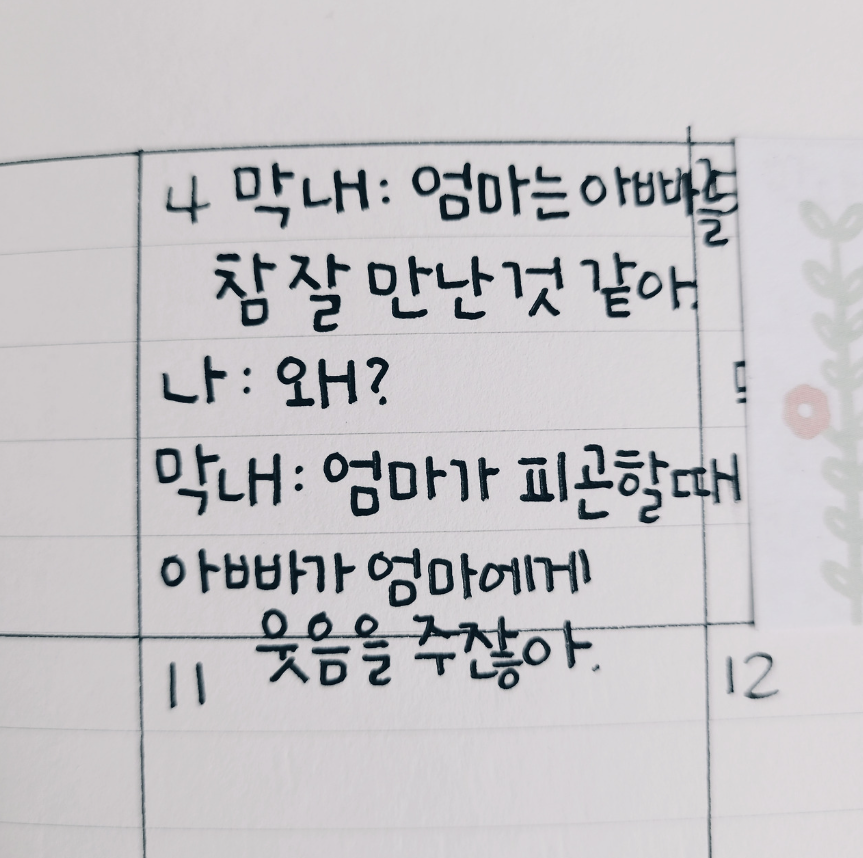 4 막내: 엄마는 아빠를
참 잘 만난것 같아.
나: 왜?
막내: 엄마가 피곤할때
아빠가 엄마에게
웃음을 주잖아.
11
12